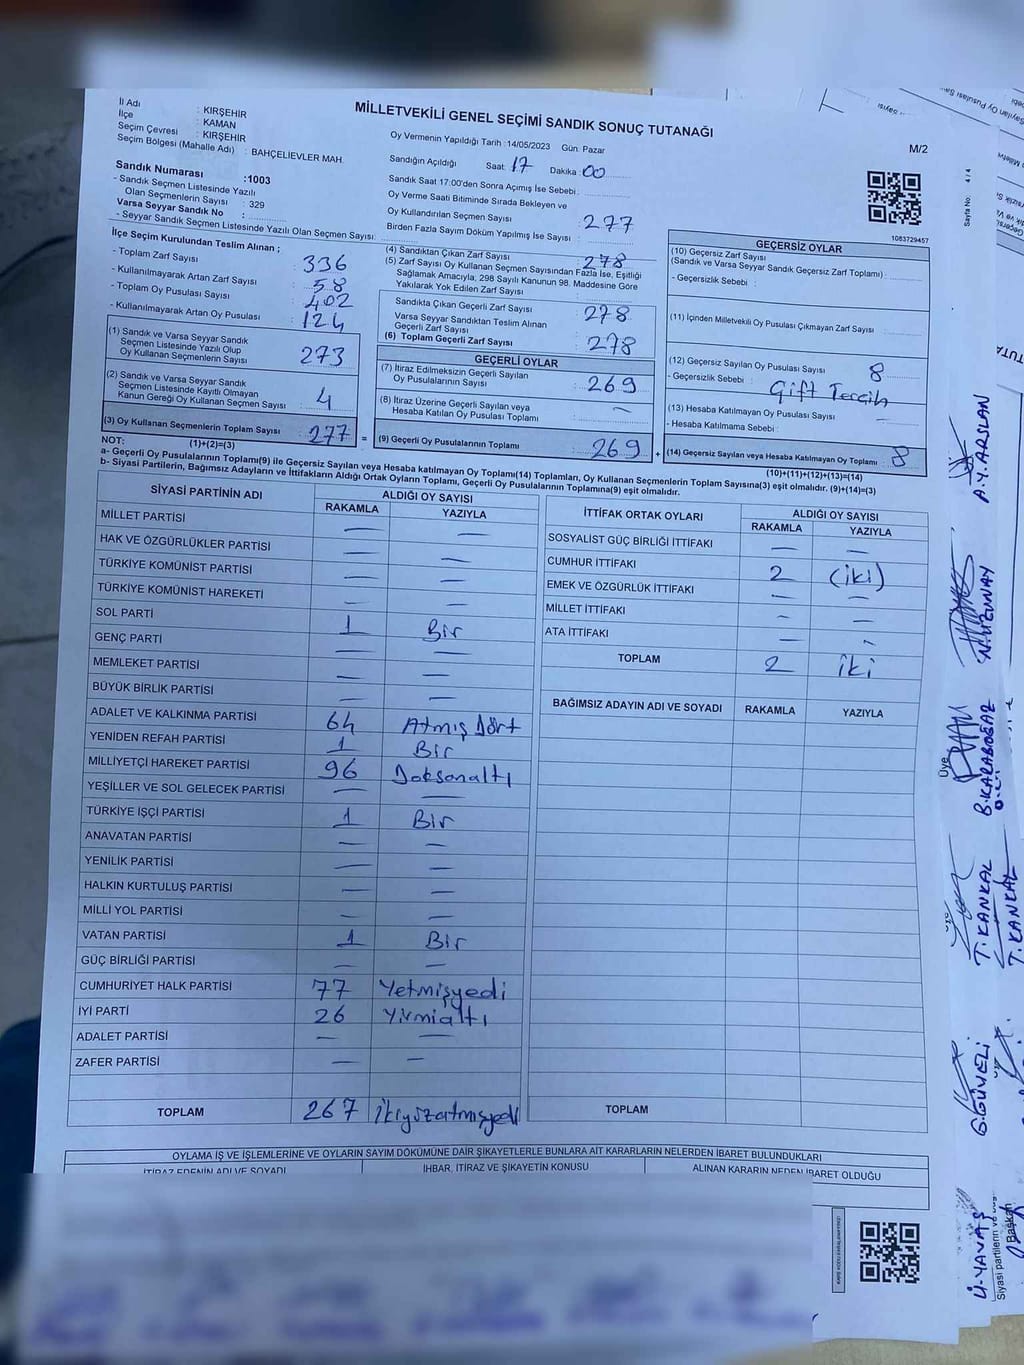 MİLLETVEKİLİ GENEL SEÇİMİ SANDIK SONUÇ TUTANAĞI
M/2
İl Adı : KIRŞEHİR
İlçe : KAMAN
Seçim Çevresi : KIRŞEHİR
Seçim Bölgesi (Mahalle Adı) : BAHÇELİEVLER MAH.
Oy Vermenin Yapıldığı Tarih :14/05/2023 Gün: Pazar
Sandığın Açıldığı Saat: 17 Dakika 00
Sandık Saat 17:00'den Sonra Açımış İse Sebebi :
Oy Verme Saati Bitiminde Sırada Bekleyen ve
Oy Kullandırılan Seçmen Sayısı : 277
Birden Fazla Sayım Döküm Yapılmış İse Sayısı :
Sandık Numarası :1003
- Sandık Seçmen Listesinde Yazılı
Olan Seçmenlerin Sayısı : 329
Varsa Seyyar Sandık No :
- Seyyar Sandık Seçmen Listesinde Yazılı Olan Seçmen Sayısı:
1083729457
Sayfa No: 4 / 4
İlçe Seçim Kurulundan Teslim Alınan ;
- Toplam Zarf Sayısı : 336
- Kullanılmayarak Artan Zarf Sayısı : 58
- Toplam Oy Pusulası Sayısı : 402
- Kullanılmayarak Artan Oy Pusulası : 124
(1) Sandık ve Varsa Seyyar Sandık
Seçmen Listesinde Yazılı Olup
Oy Kullanan Seçmenlerin Sayısı : 273
(2) Sandık ve Varsa Seyyar Sandık
Seçmen Listesinde Kayıtlı Olmayan
Kanun Gereği Oy Kullanan Seçmen Sayısı : 4
(3) Oy Kullanan Seçmenlerin Toplam Sayısı : 277 =
(1)+(2)=(3)
(4) Sandıktan Çıkan Zarf Sayısı : 278
(5) Zarf Sayısı Oy Kullanan Seçmen Sayısından Fazla İse, Eşitliği
Sağlamak Amacıyla; 298 Sayılı Kanunun 98. Maddesine Göre
Yakılarak Yok Edilen Zarf Sayısı :
Sandıkta Çıkan Geçerli Zarf Sayısı : 278
Varsa Seyyar Sandıktan Teslim Alınan
Geçerli Zarf Sayısı :
(6) Toplam Geçerli Zarf Sayısı : 278
GEÇERLİ OYLAR
(7) İtiraz Edilmeksizin Geçerli Sayılan
Oy Pusulalarının Sayısı : 269
(8) İtiraz Üzerine Geçerli Sayılan veya
Hesaba Katılan Oy Pusulası Toplamı : —
(9) Geçerli Oy Pusulalarının Toplamı : 269 +
GEÇERSİZ OYLAR
(10) Geçersiz Zarf Sayısı
(Sandık ve Varsa Seyyar Sandık Geçersiz Zarf Toplamı) :
- Geçersizlik Sebebi :
(11) İçinden Milletvekili Oy Pusulası Çıkmayan Zarf Sayısı :
(12) Geçersiz Sayılan Oy Pusulası Sayısı : 8
- Geçersizlik Sebebi : Çift Tercih
(13) Hesaba Katılmayan Oy Pusulası Sayısı :
- Hesaba Katılmama Sebebi :
(14) Geçersiz Sayılan veya Hesaba Katılmayan Oy Toplamı : 8
(10)+(11)+(12)+(13)=(14)
NOT:
a- Geçerli Oy Pusulalarının Toplamı(9) ile Geçersiz Sayılan veya Hesaba katılmayan Oy Toplamı(14) Toplamları, Oy Kullanan Seçmenlerin Toplam Sayısına(3) eşit olmalıdır. (9)+(14)=(3)
b- Siyasi Partilerin, Bağımsız Adayların ve İttifakların Aldığı Ortak Oyların Toplamı, Geçerli Oy Pusulalarının Toplamına(9) eşit olmalıdır.
SİYASİ PARTİNİN ADI ALDIĞI OY SAYISI
RAKAMLA YAZIYLA
MİLLET PARTİSİ — —
HAK VE ÖZGÜRLÜKLER PARTİSİ — —
TÜRKİYE KOMÜNİST PARTİSİ — —
TÜRKİYE KOMÜNİST HAREKETİ — —
SOL PARTİ 1 Bir
GENÇ PARTİ — —
MEMLEKET PARTİSİ — —
BÜYÜK BİRLİK PARTİSİ — —
ADALET VE KALKINMA PARTİSİ 64 Atmış dört
YENİDEN REFAH PARTİSİ 1 Bir
MİLLİYETÇİ HAREKET PARTİSİ 96 Doksanaltı
YEŞİLLER VE SOL GELECEK PARTİSİ — —
TÜRKİYE İŞÇİ PARTİSİ 1 Bir
ANAVATAN PARTİSİ — —
YENİLİK PARTİSİ — —
HALKIN KURTULUŞ PARTİSİ — —
MİLLİ YOL PARTİSİ — —
VATAN PARTİSİ 1 Bir
GÜÇ BİRLİĞİ PARTİSİ — —
CUMHURİYET HALK PARTİSİ 77 Yetmişyedi
İYİ PARTİ 26 Yirmialtı
ADALET PARTİSİ — —
ZAFER PARTİSİ — —
TOPLAM 267 ikiyüzatmışyedi
İTTİFAK ORTAK OYLARI ALDIĞI OY SAYISI
RAKAMLA YAZIYLA
SOSYALİST GÜÇ BİRLİĞİ İTTİFAKI — —
CUMHUR İTTİFAKI 2 (iki)
EMEK VE ÖZGÜRLÜK İTTİFAKI — —
MİLLET İTTİFAKI — —
ATA İTTİFAKI — —
TOPLAM 2 iki
BAĞIMSIZ ADAYIN ADI VE SOYADI RAKAMLA YAZIYLA
TOPLAM
OYLAMA İŞ VE İŞLEMLERİNE VE OYLARIN SAYIM DÖKÜMÜNE DAİR ŞİKAYETLERLE BUNLARA AİT KARARLARIN NELERDEN İBARET BULUNDUKLARI
İTİRAZ EDENİN ADI VE SOYADI İHBAR, İTİRAZ VE ŞİKAYETİN KONUSU ALINAN KARARIN NEDEN İBARET OLDUĞU
A.Y.ARSLAN
Üye
B.KARABOĞAZ
T.KANKAL
T.KANKAL
G.GÜVELİ
Ü.YAVAŞ
Başkan